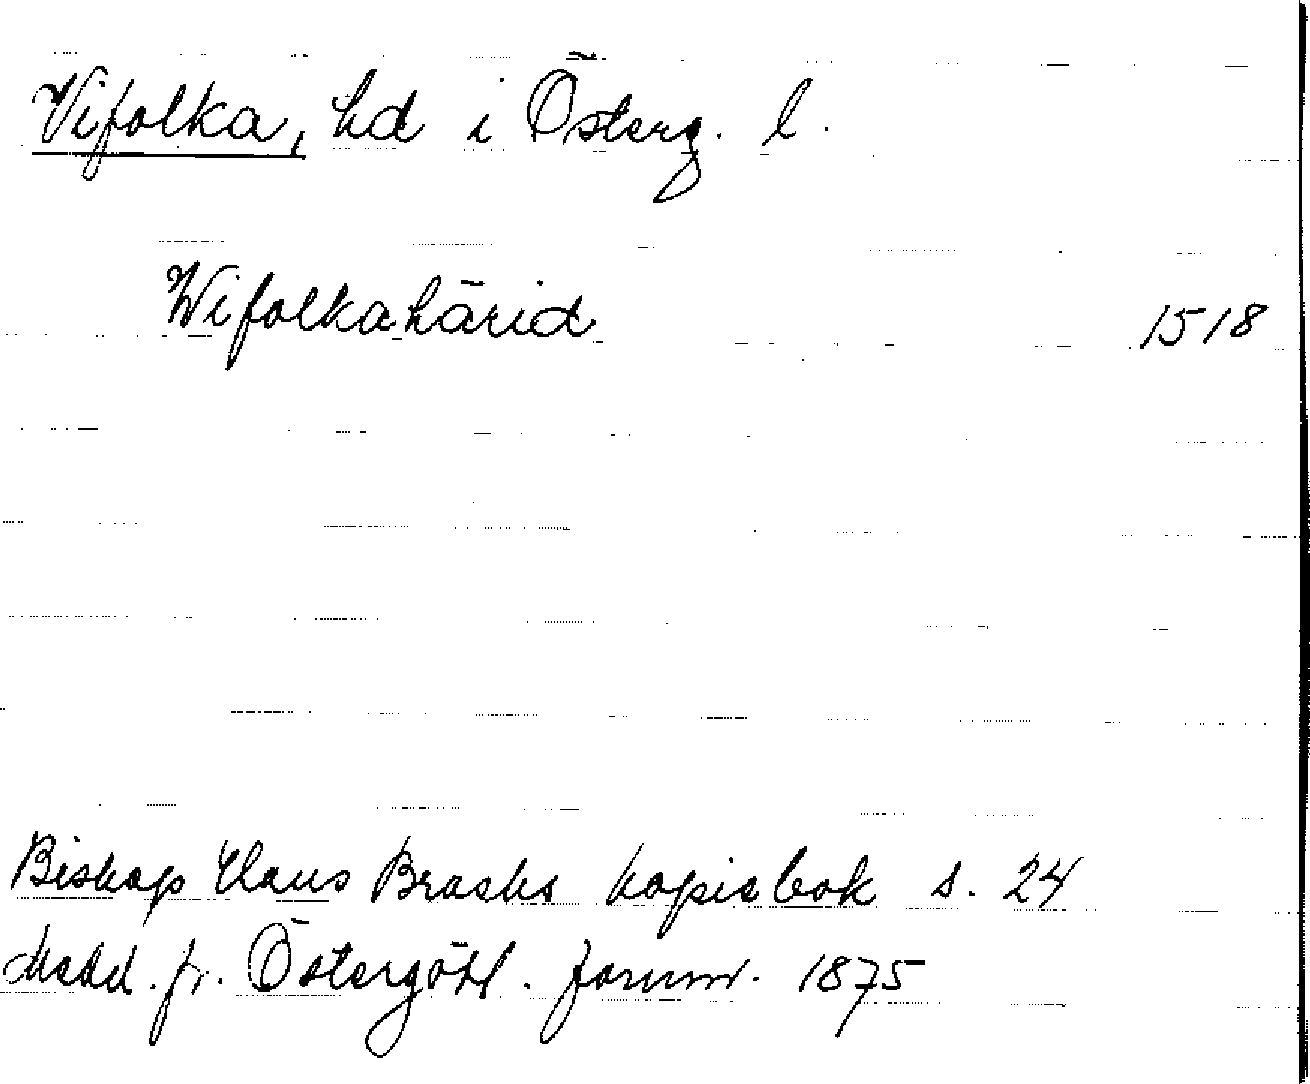 Vifolka, hd i Österg. l.
Wifolkahärid 1518
Biskop Hans Brasks kopiebok s. 24
Medd. fr. Östergötl. fornm. 1875